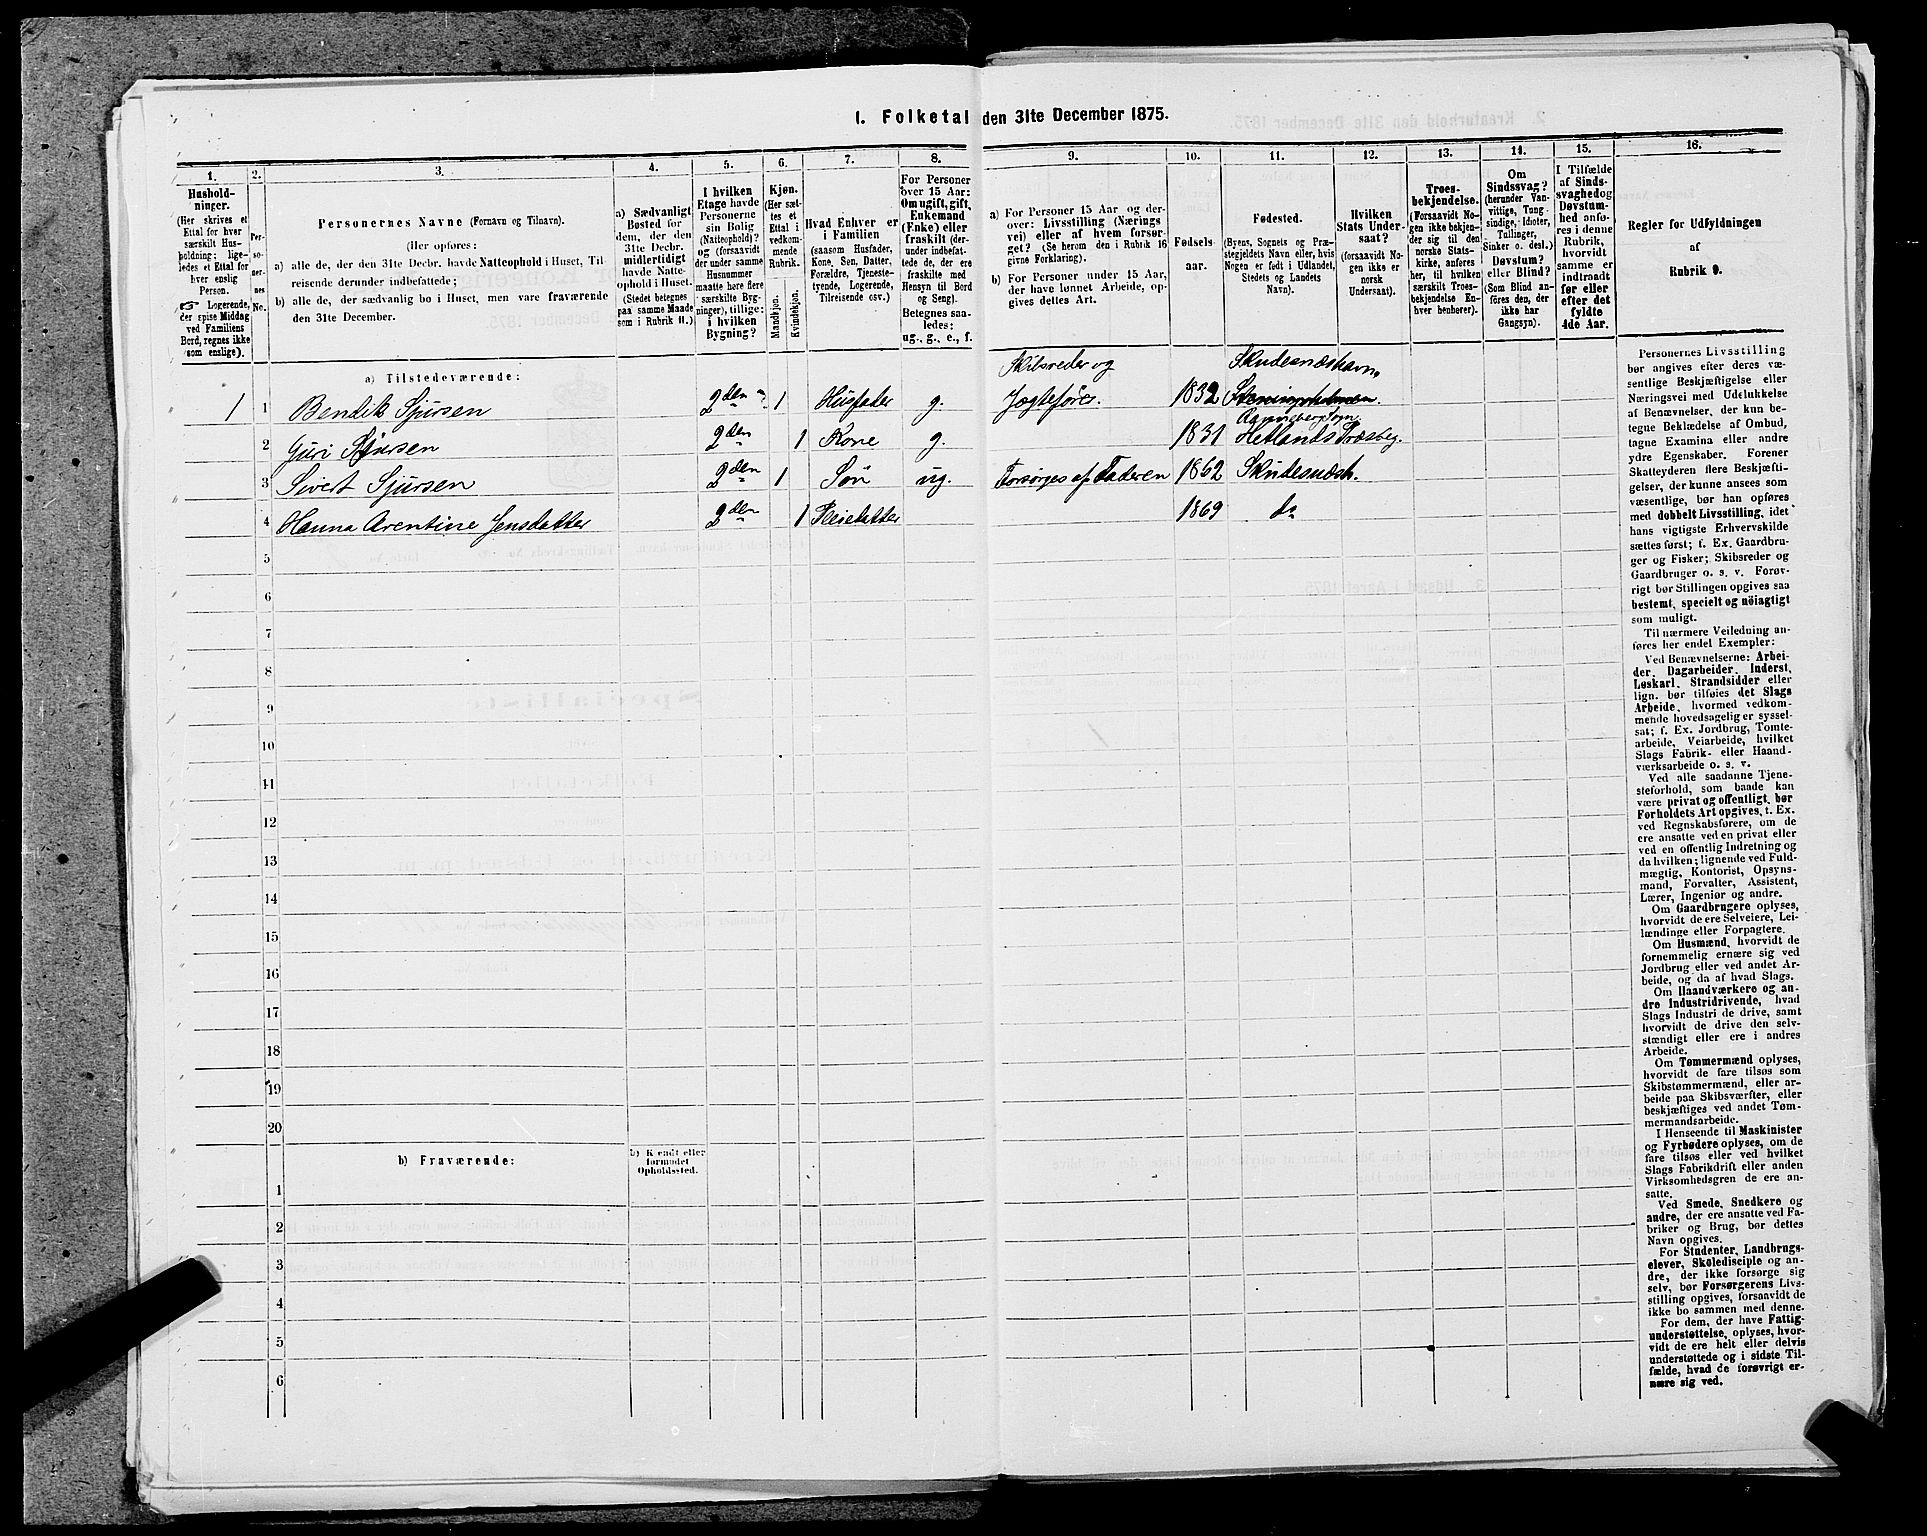 1. Folketal den 31te December 1875.
1.
2.
3.
4.
5.
6.
7.
8.
9.
10.
11.
12.
13.
14.
15.
16.
Hushold-
ninger.
(Her skrives et
Ettal for hver
særskilt Hus-
holdning; lige-
ledes et Ettal for
hver enslig
Person.
☞ Logerende,
der spise Middag
ved Familiens
Bord, regnes ikke
som enslige).
Per-
so-
ner-
nes
No.
Personernes Navne (Fornavn og Tilnavn).
(Her opføres:
a) alle de, der den 31te Decbr. havde Natteophold i Huset, Til-
reisende derunder indbefattede;
b) alle de, der sædvanlig bo i Huset, men vare fraværende
den 31te December.
a) Sædvanligt
Bosted for
dem, der den
31te Decbr.
midlertidigt
havde Natte-
ophold i Huset.
(Stedet betegnes
paa samme Maade
som i Rubrik 11.)
I hvilken
Etage havde
Personerne
sin Bolig
(Natteophold)?
og (forsaavidt
der under samme
Husnummer
maatte høre flere
særskilte Byg-
ninger), tillige:
i hvilken
Bygning?
Kjøn.
(Her sæt-
tes et
Ettal i
vedkom-
mende
Rubrik.
Mandkjøn.
Kvindekjøn.
Hvad Enhver er
i Familien
(saasom Husfader,
Kone, Søn, Datter,
Forældre, Tjeneste-
tyende, Logerende,
Tilreisende osv.)
For Personer
over 15 Aar:
Om ugift, gift,
Enkemand
(Enke) eller
fraskilt (der-
under indbefat-
tede de, der ere
fraskilte med
Hensyn til Bord
og Seng).
Betegnes saa-
ledes:
ug., g., e., f.
a) For Personer 15 Aar og der-
over: Livsstilling (Nærings
vei) eller af hvem forsør-
get? (Se herom den i Rubrik 16
givne Forklaring).
b) For Personer under 15 Aar,
der have lønnet Arbeide, op-
gives dettes Art.
Fødsels-
aar.
Fødested.
(Byens, Sognets og Præ-
stegjeldets Navn eller, hvis
Nogen er født i Udlandet,
Stedets og Landets
Navn).
Hvilken
Stats Under-
saat?
(forsaavidt No-
gen ikke er
norsk
Undersaat).
Troes-
bekjendelse.
(Forsaavidt No-
gen ikke bekjen-
der sig til den
norske Stats-
kirke, anføres
her, til hvilken
særskilt Troes-
bekjendelse En-
hver henhører).
Om
Sindssvag?
(herunder Van-
vittige, Tung-
sindige, Idioter,
Tullinger,
Sinker o. desl.)
Døvstum?
eller Blind?
(Som Blind an-
føres den, der
ikke har
Gangsyn).
I Tilfælde
af Sinds-
svaghed og
Døvstum-
hed anfø-
res i denne
Rubrik,
hvorvidt
samme er
indtraadt
før eller
efter det
fyldte
4de Aar.
Regler for Udfyldningen
af
Rubrik 9.
a) Tilstedeværende:
Skibsreder og Skudesnæshavn,
1 1 Bendik Sjursen 2den 1 Husfader g. Jægtefører. 1832
Rennebergsogn
2 Guri Sjursen 2den 1 Kone g. 1831 Hetlands Præsteg.
3 Sivert Sjursen 2den 1 Søn ug. Forsørges af Faderen 1862 Skudesnæsh.
4 Hanna Arentine Jensdatter 2den 1 Pleiedatter 1869 do
5
6
7
8
9
10
11
12
13
14
15
16
17
18
19
20
b) Fraværende:
b) Kjendt eller
formodet
Opholdssted.
1
2
3
4
5
6
Personernes Livsstilling
bør angives efter deres væ-
sentlige Beskjæftigelse eller
Næringsvei med Udelukkelse
af Benævnelser, der kun be-
tegne Beklædelse af Ombud,
tagne Examina eller andre
ydre Egenskaber. Forener
Skatteyderen flere Beskjæfti-
gelser, der kunne ansees som
væsentlige, bør han opføres
med dobbelt Livsstilling, idet
hans vigtigste Erhvervskilde
sættes først; f. Ex. Gaardbru-
ger og Fisker; Skibsreder og
Gaardbruger o. s. v. Forøv-
rigt bør Stillingen opgives saa
bestemt, specielt og nøiagtigt
som muligt.
Til nærmere Veiledning an-
føres her endel Exempler:
Ved Benævnelserne: Arbei-
der, Dagarbeider, Inderst,
Løskarl, Strandsidder eller
lign. bør tilføies det Slags
Arbeide, hvormed vedkom-
mende hovedsagelig er syssel-
sat; f. Ex. Jordbrug, Tomte-
arbeide, Veiarbeide, hvilket
Slags Fabrik- eller Haand-
værksarbeide o. s. v.
Ved alle saadanne Tjene-
steforhold, som baade kan
være privat og offentligt, bør
Forholdets Art opgives, t. Ex.
ved Regnskabsførere, om de
ere ansatte ved en privat eller
ved en offentlig Indretning og
da hvilken; lignende ved Fuld-
mægtig, Kontorist, Opsyns-
mand, Forvalter, Assistent,
Lærer, Ingeniør og andre.
Om Gaardbrugere oplyses,
hvorvidt de ere Selveiere, Lei-
lændinge eller Forpagtere.
Om Husmænd, hvorvidt de
fornemmelig ernære sig ved
Jordbrug eller ved andet Ar-
beide, og da af hvad Slags.
Om Haandværkere og an-
dre Industridrivende, hvad
Slags Industri de drive, samt
hvorvidt de drive den selv-
stændigt eller ere i andres
Arbeide.
Om Tømmermænd oplyses,
hvorvidt de fare tilsøs som
Skibstømmermænd, eller ar-
beide paa Skibsværfter, eller
beskjæftiges ved andet Tøm-
mermandsarbeide.
I Henseende til Maskinister
og Fyrbødere oplyses, om de
fare tilsøs eller ved hvilket
Slags Fabrikdrift eller anden
Virksomhedsgren de ere an-
satte.
Ved Smede, Snedkere og
andre, der ere ansatte ved Fa-
briker og Brug, bør dettes
Navn opgives.
For Studenter, Landbrugs-
elever, Skoledisciple og an-
dre, der ikke forsørge sig
selv, bør Forsørgerens Livs-
stilling opgives, forsaavidt de
ikke bo sammen med denne.
For dem, der have Fattig-
understøttelse, oplyses, hvor-
vidt de ere helt eller delvis
understøttede og i sidste Til-
fælde, hvad de forøvrigt er-
nære sig ved.